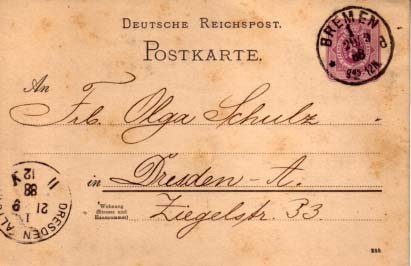 DEUTSCHE REICHSPOST.
POSTKARTE.
BREMEN
20 9
88
9 45-12N
An
Frl. Olga Schulz
in Dresden-A.
*Wohnung
(Strasse und
Hausnummer)
Ziegelstr. 33.
DRESDEN ALT
21 9
88
12